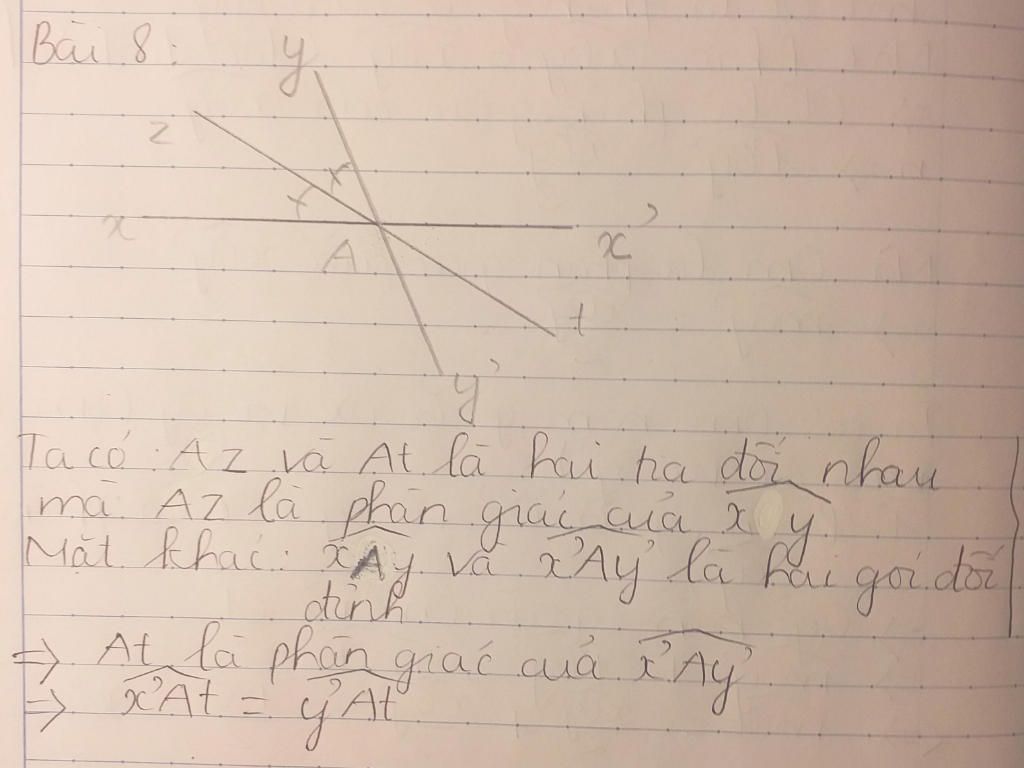 Bài 8:
y
z
x
x'
A
t
y'
Ta có: Az và At là hai tia đối nhau
mà Az là phân giác của x y
Mặt khác: xAy và x'Ay' là hai gói đối
đỉnh
=> At là phân giác cuả x'Ay'
=> x'At = y'At